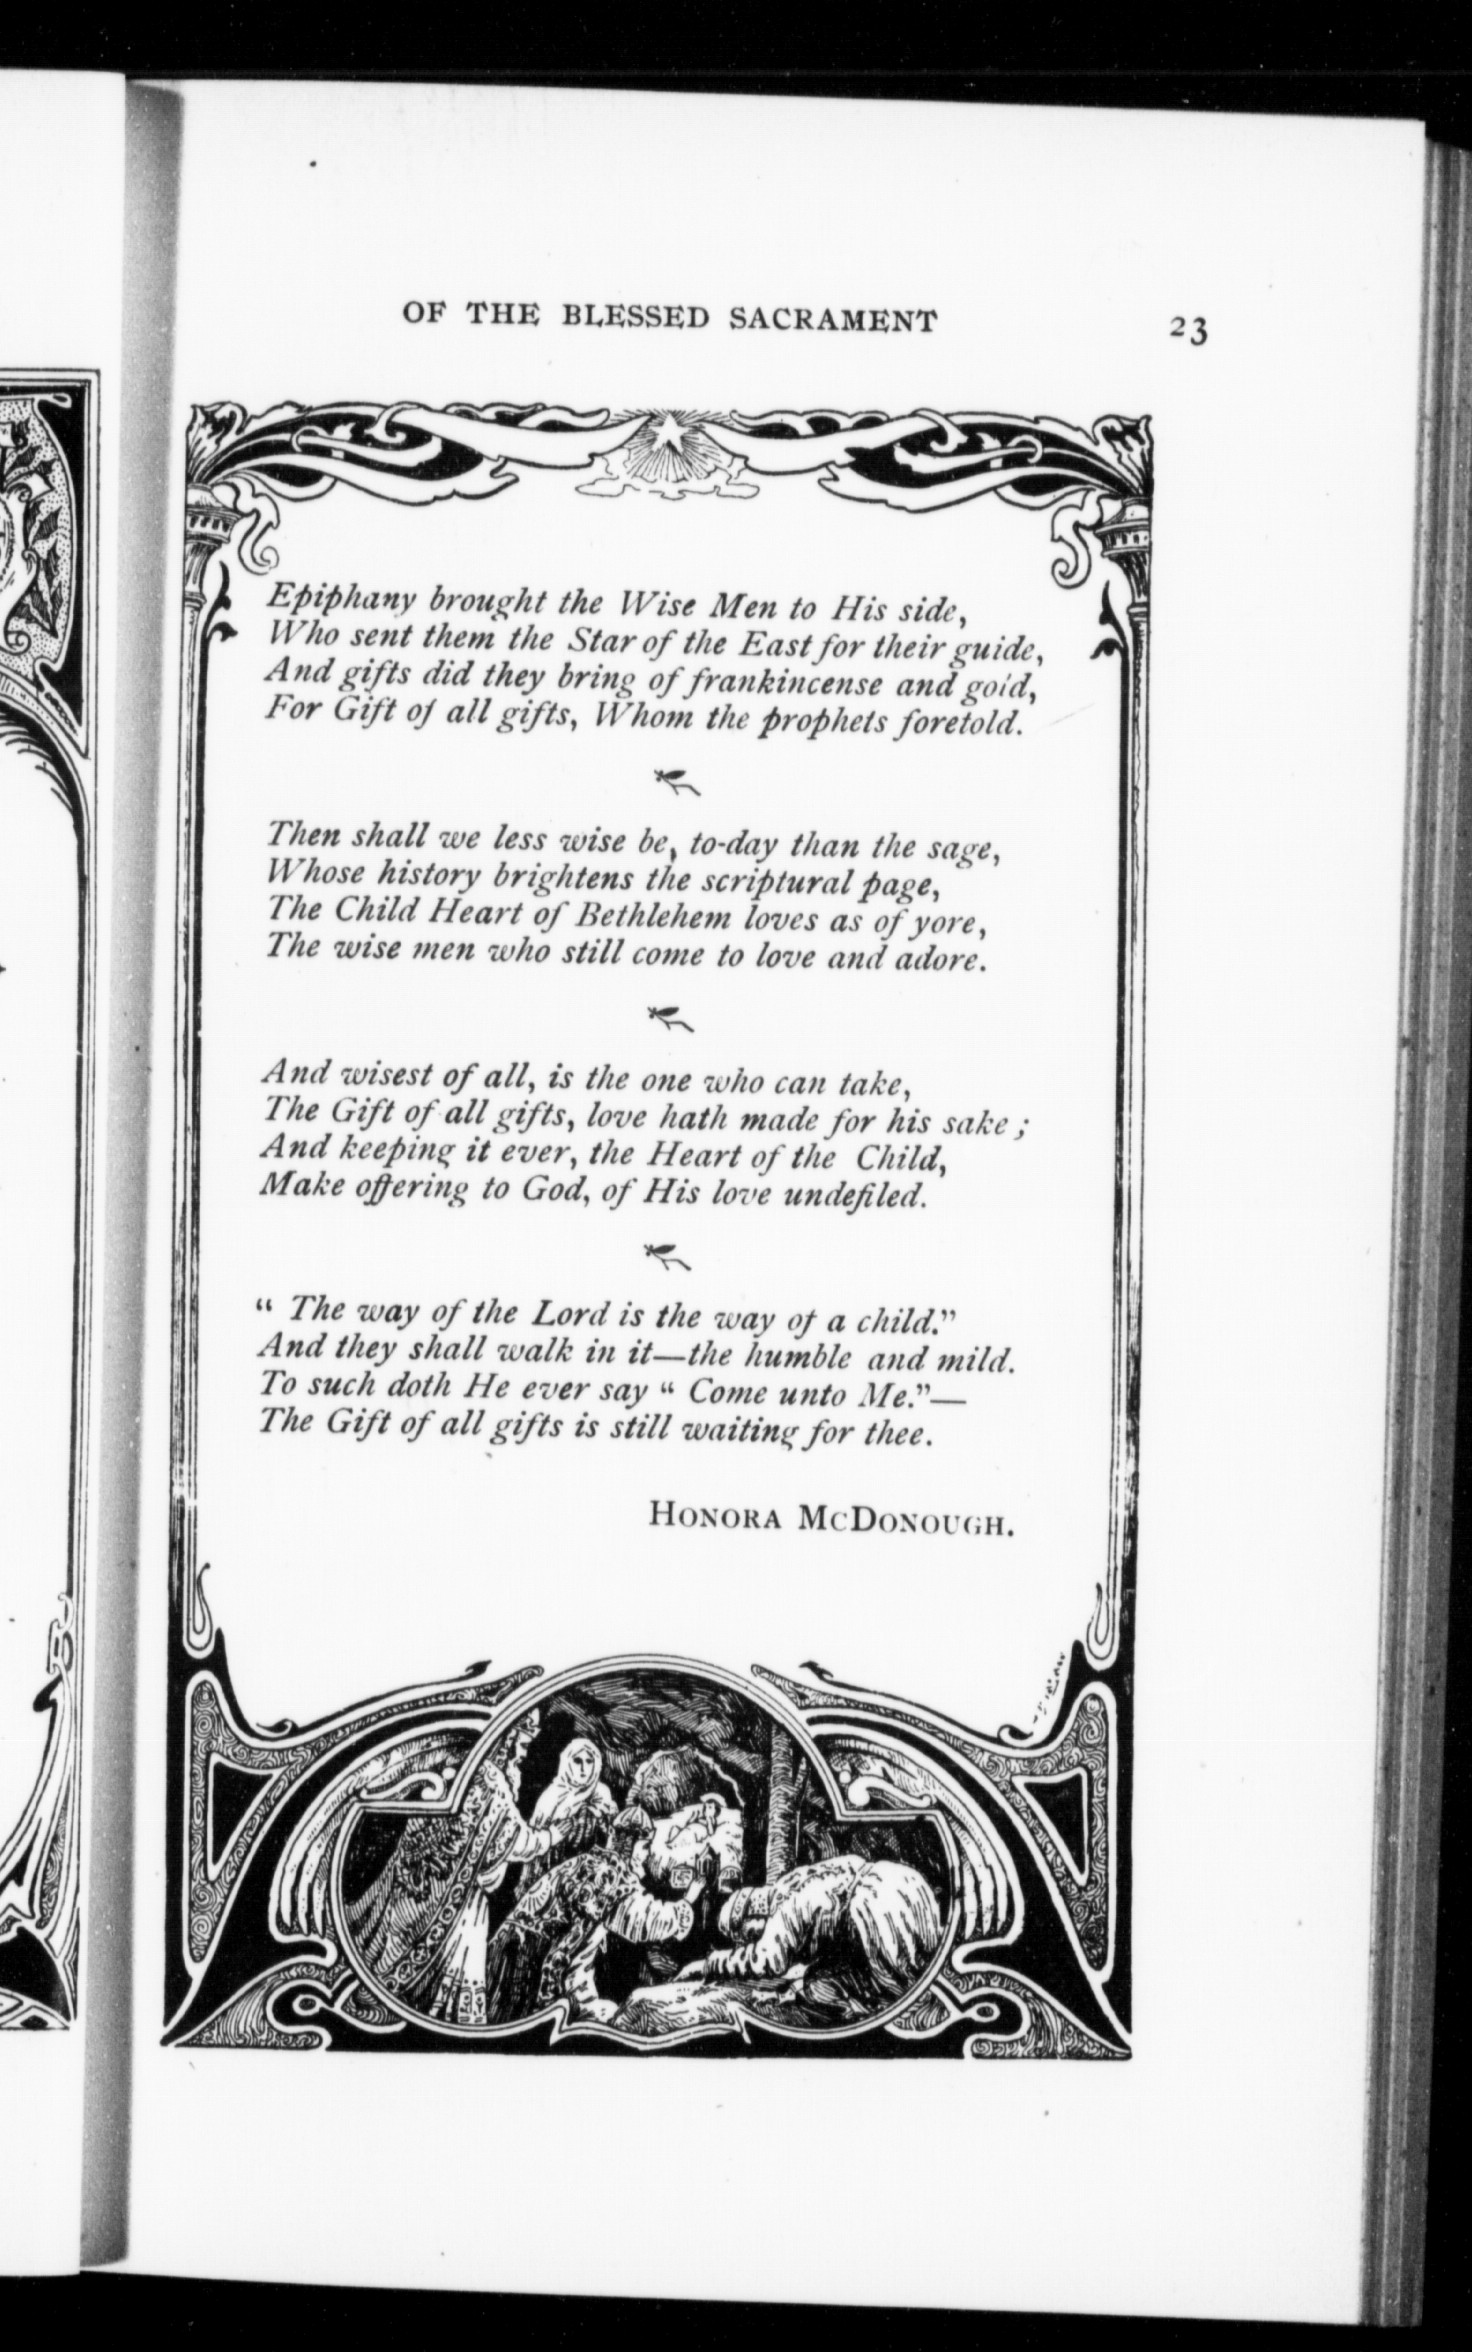 OF THE BLESSED SACRAMENT 23
Epiphany brought the Wise Men to His side,
Who sent them the Star of the East for their guide,
And gifts did they bring of frankincense and gold,
For Gift of all gifts, Whom the prophets foretold.
Then shall we less wise be, to-day than the sage,
Whose history brightens the scriptural page,
The Child Heart of Bethlehem loves as of yore,
The wise men who still come to love and adore.
And wisest of all, is the one who can take,
The Gift of all gifts, love hath made for his sake ;
And keeping it ever, the Heart of the Child,
Make offering to God, of His love undefiled.
“ The way of the Lord is the way of a child.”
And they shall walk in it—the humble and mild.
To such doth He ever say “ Come unto Me.”—
The Gift of all gifts is still waiting for thee.
HONORA MCDONOUGH.